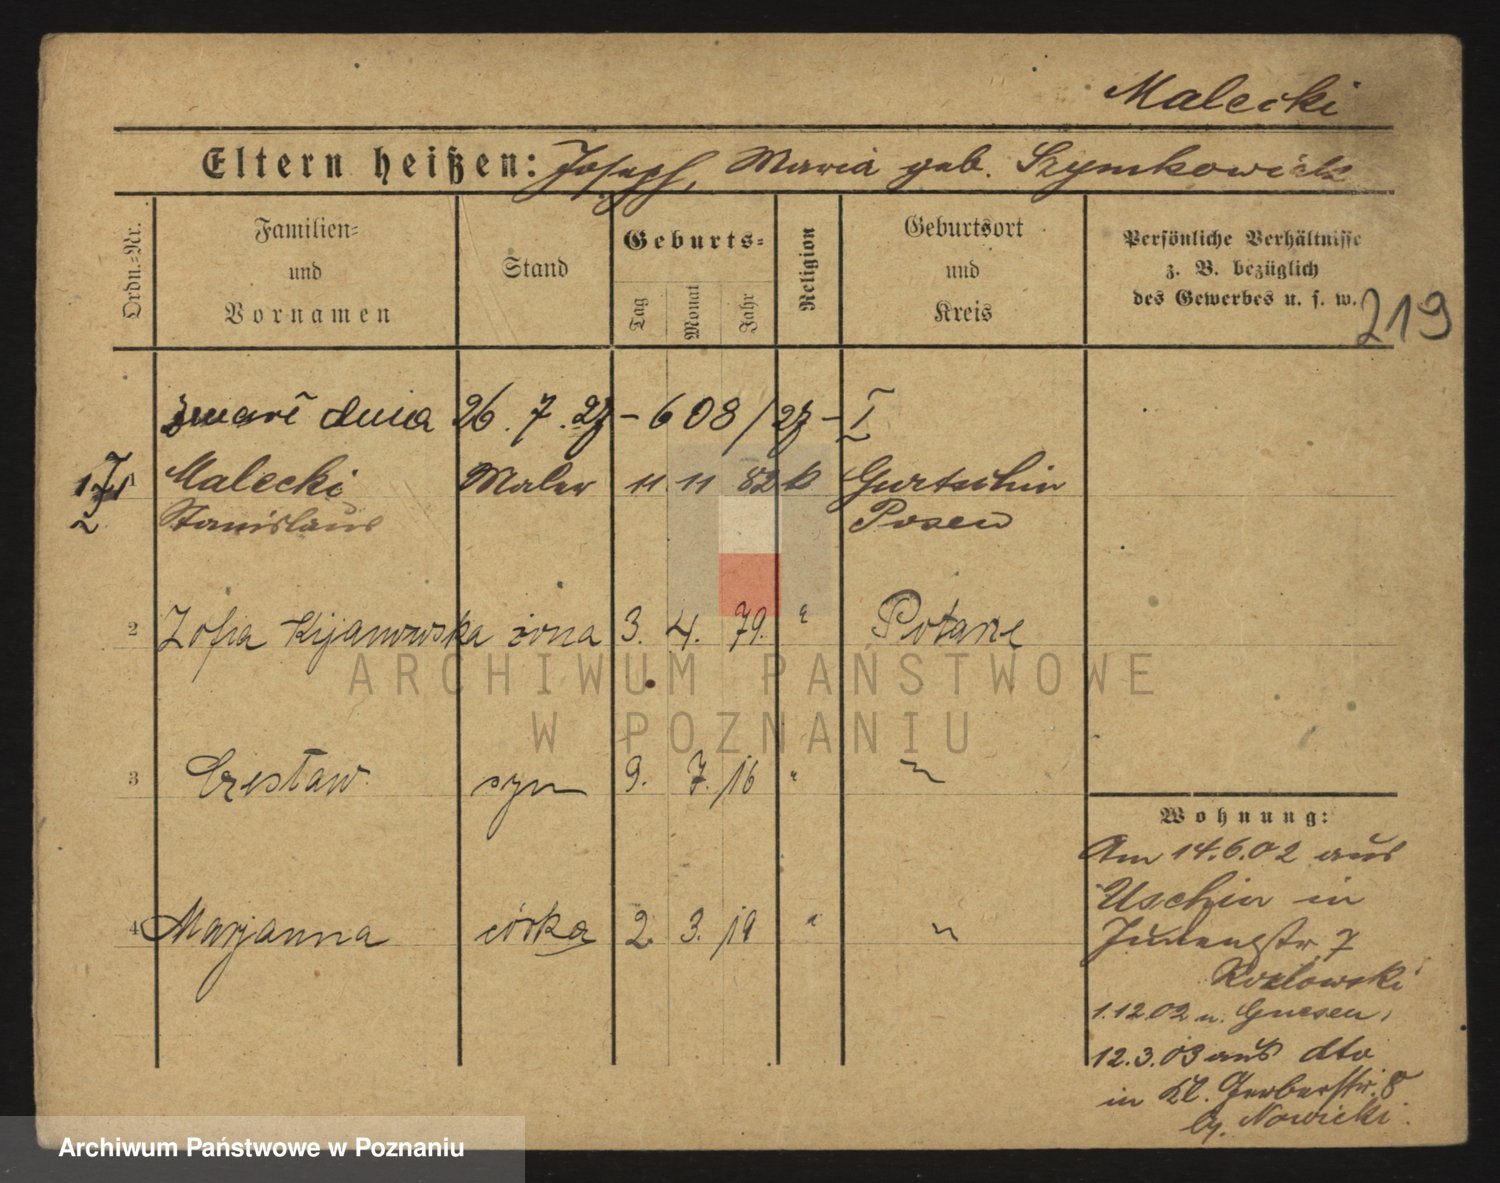 Malecki
Eltern heißen: Joseph, Maria geb. Szymkowiak
Ordn.=Nr.
Familien=
und
Vornamen
Stand
Geburts=
Tag
Monat
Jahr
Religion
Geburtsort
und
Kreis
Persönliche Verhältnisse
z. B. bezüglich
des Gewerbes u. s. w.
219
zmarł dnia 26. 7. 27 – 608/27 – I
Malecki Maler 11 11 82 k Gurtschin
Stanislaus Posen
2 Zofia Kijanowska żona 3. 4. 79. " Potarze
3 Czesław syn 9. 7. 16 " "
4 Marjanna córka 2. 3. 19 " "
Wohnung:
Am 14.6.02 aus
Uschin in
7
Kozlowski
1.12.02 n. Gnesen,
12.3.03 aus dto
in Kl. Gerberstr. 8
by. Nowicki.
ARCHIWUM PAŃSTWOWE
W POZNANIU
Archiwum Państwowe w Poznaniu